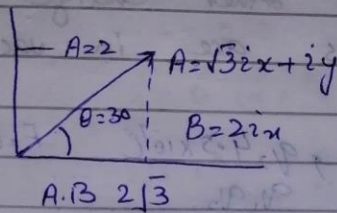 A=2
A=√3ix+iy
θ=30
B=2ix
A.B 2√3